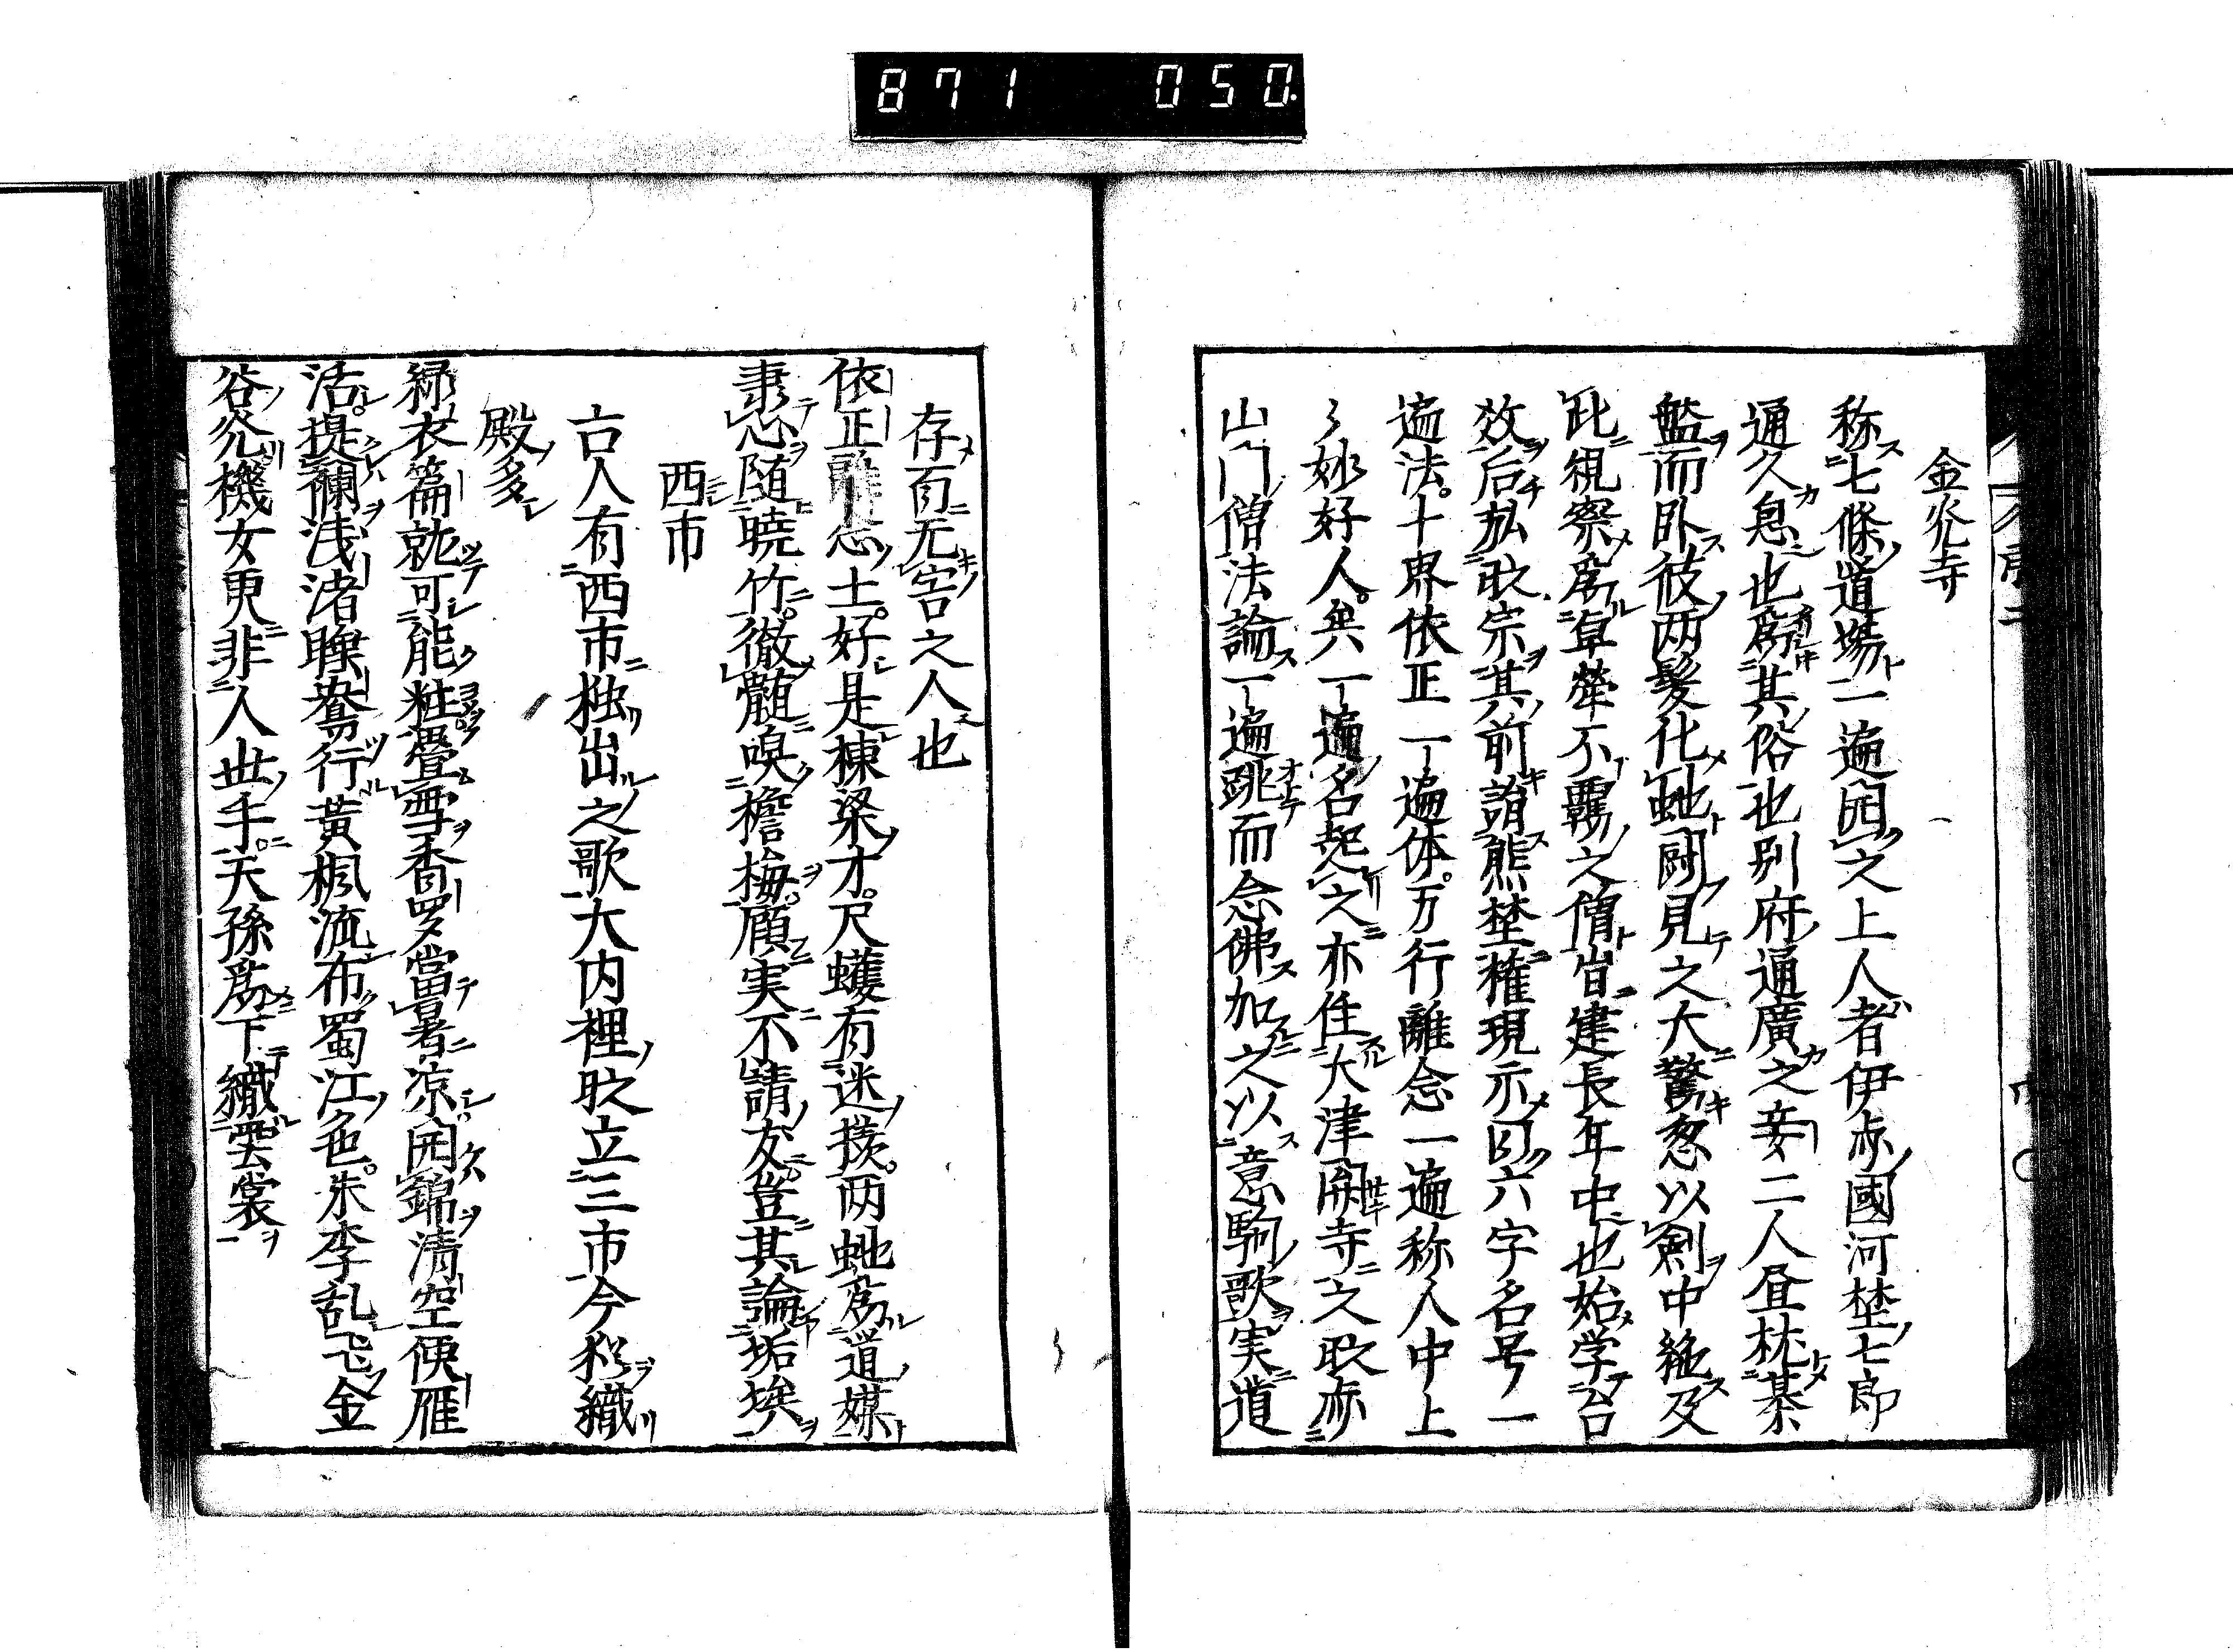 871 050
金光寺
称七條道場一遍囘之上人者伊豫國河埜七郎
通久息也為其俗也別府通廣之妾二人昼枕棊
盤而卧彼両髪化虵闘見之大驚忽以剣中絶及
此視察為草㸅不霧之僧皆建長年中也始学台
效后弘歓宗其前詣熊埜権現示曰六字名号一
遍法十界依正一遍体万行離念一遍称人中上
〻妙好人矣一遍名起之亦住大津関寺之歓亦
山門僧法論一遍跳而念佛加之以意駒歌実道
存百无害之人也
依正離念土好是棟梁才尺蠖有迷援両虵為道媒
肅心随暁竹徹髄嗅檐梅願実不請友豈其論垢埃
西市
古人有西市独出之歌大内裡欧立三市今於織
殿多
緑衣篇就可能粧疊雪香罗當暑凉囘錦清空便雁
活提襴浅渚睐鴦行黃楓流布蜀江色朱李乱飞金
谷光機女更非人世手天孫為下織雲裳